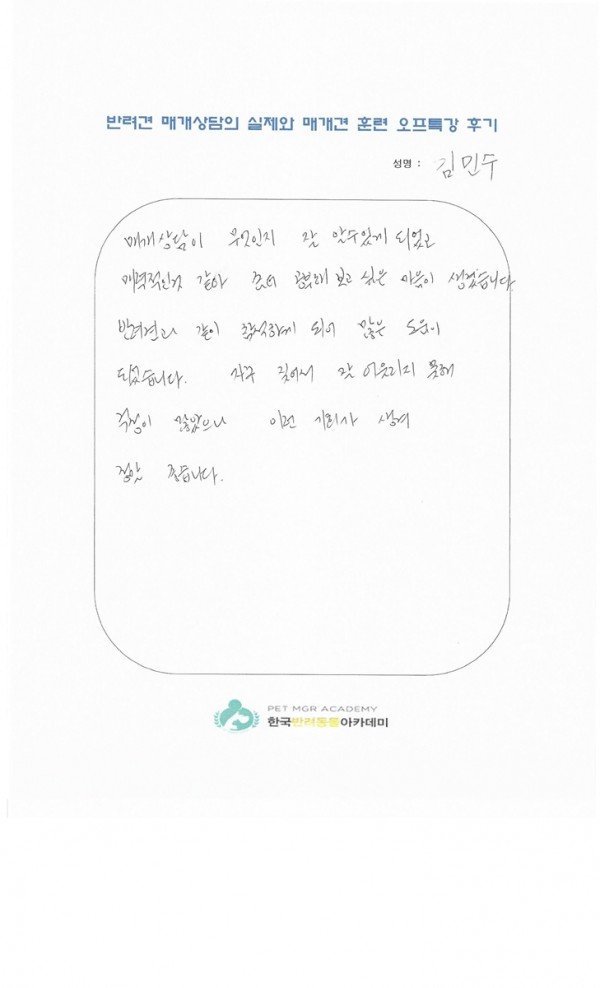 반려견 매개상담의 실제와 매개견 훈련 오프특강 후기
성명 : 김민수
매개상담이 무엇인지 잘 알수있게 되었고
매력적인것 같아 좀더 공부해 보고 싶은 마음이 생겼습니다
반려견과 같이 참석하게 되어 많은 도움이
되었습니다. 자꾸 짖어서 잘 어울리지 못해
걱정이 많았으나 이런 기회가 생겨
정말 좋습니다.
PET MGR ACADEMY
한국반려동물아카데미